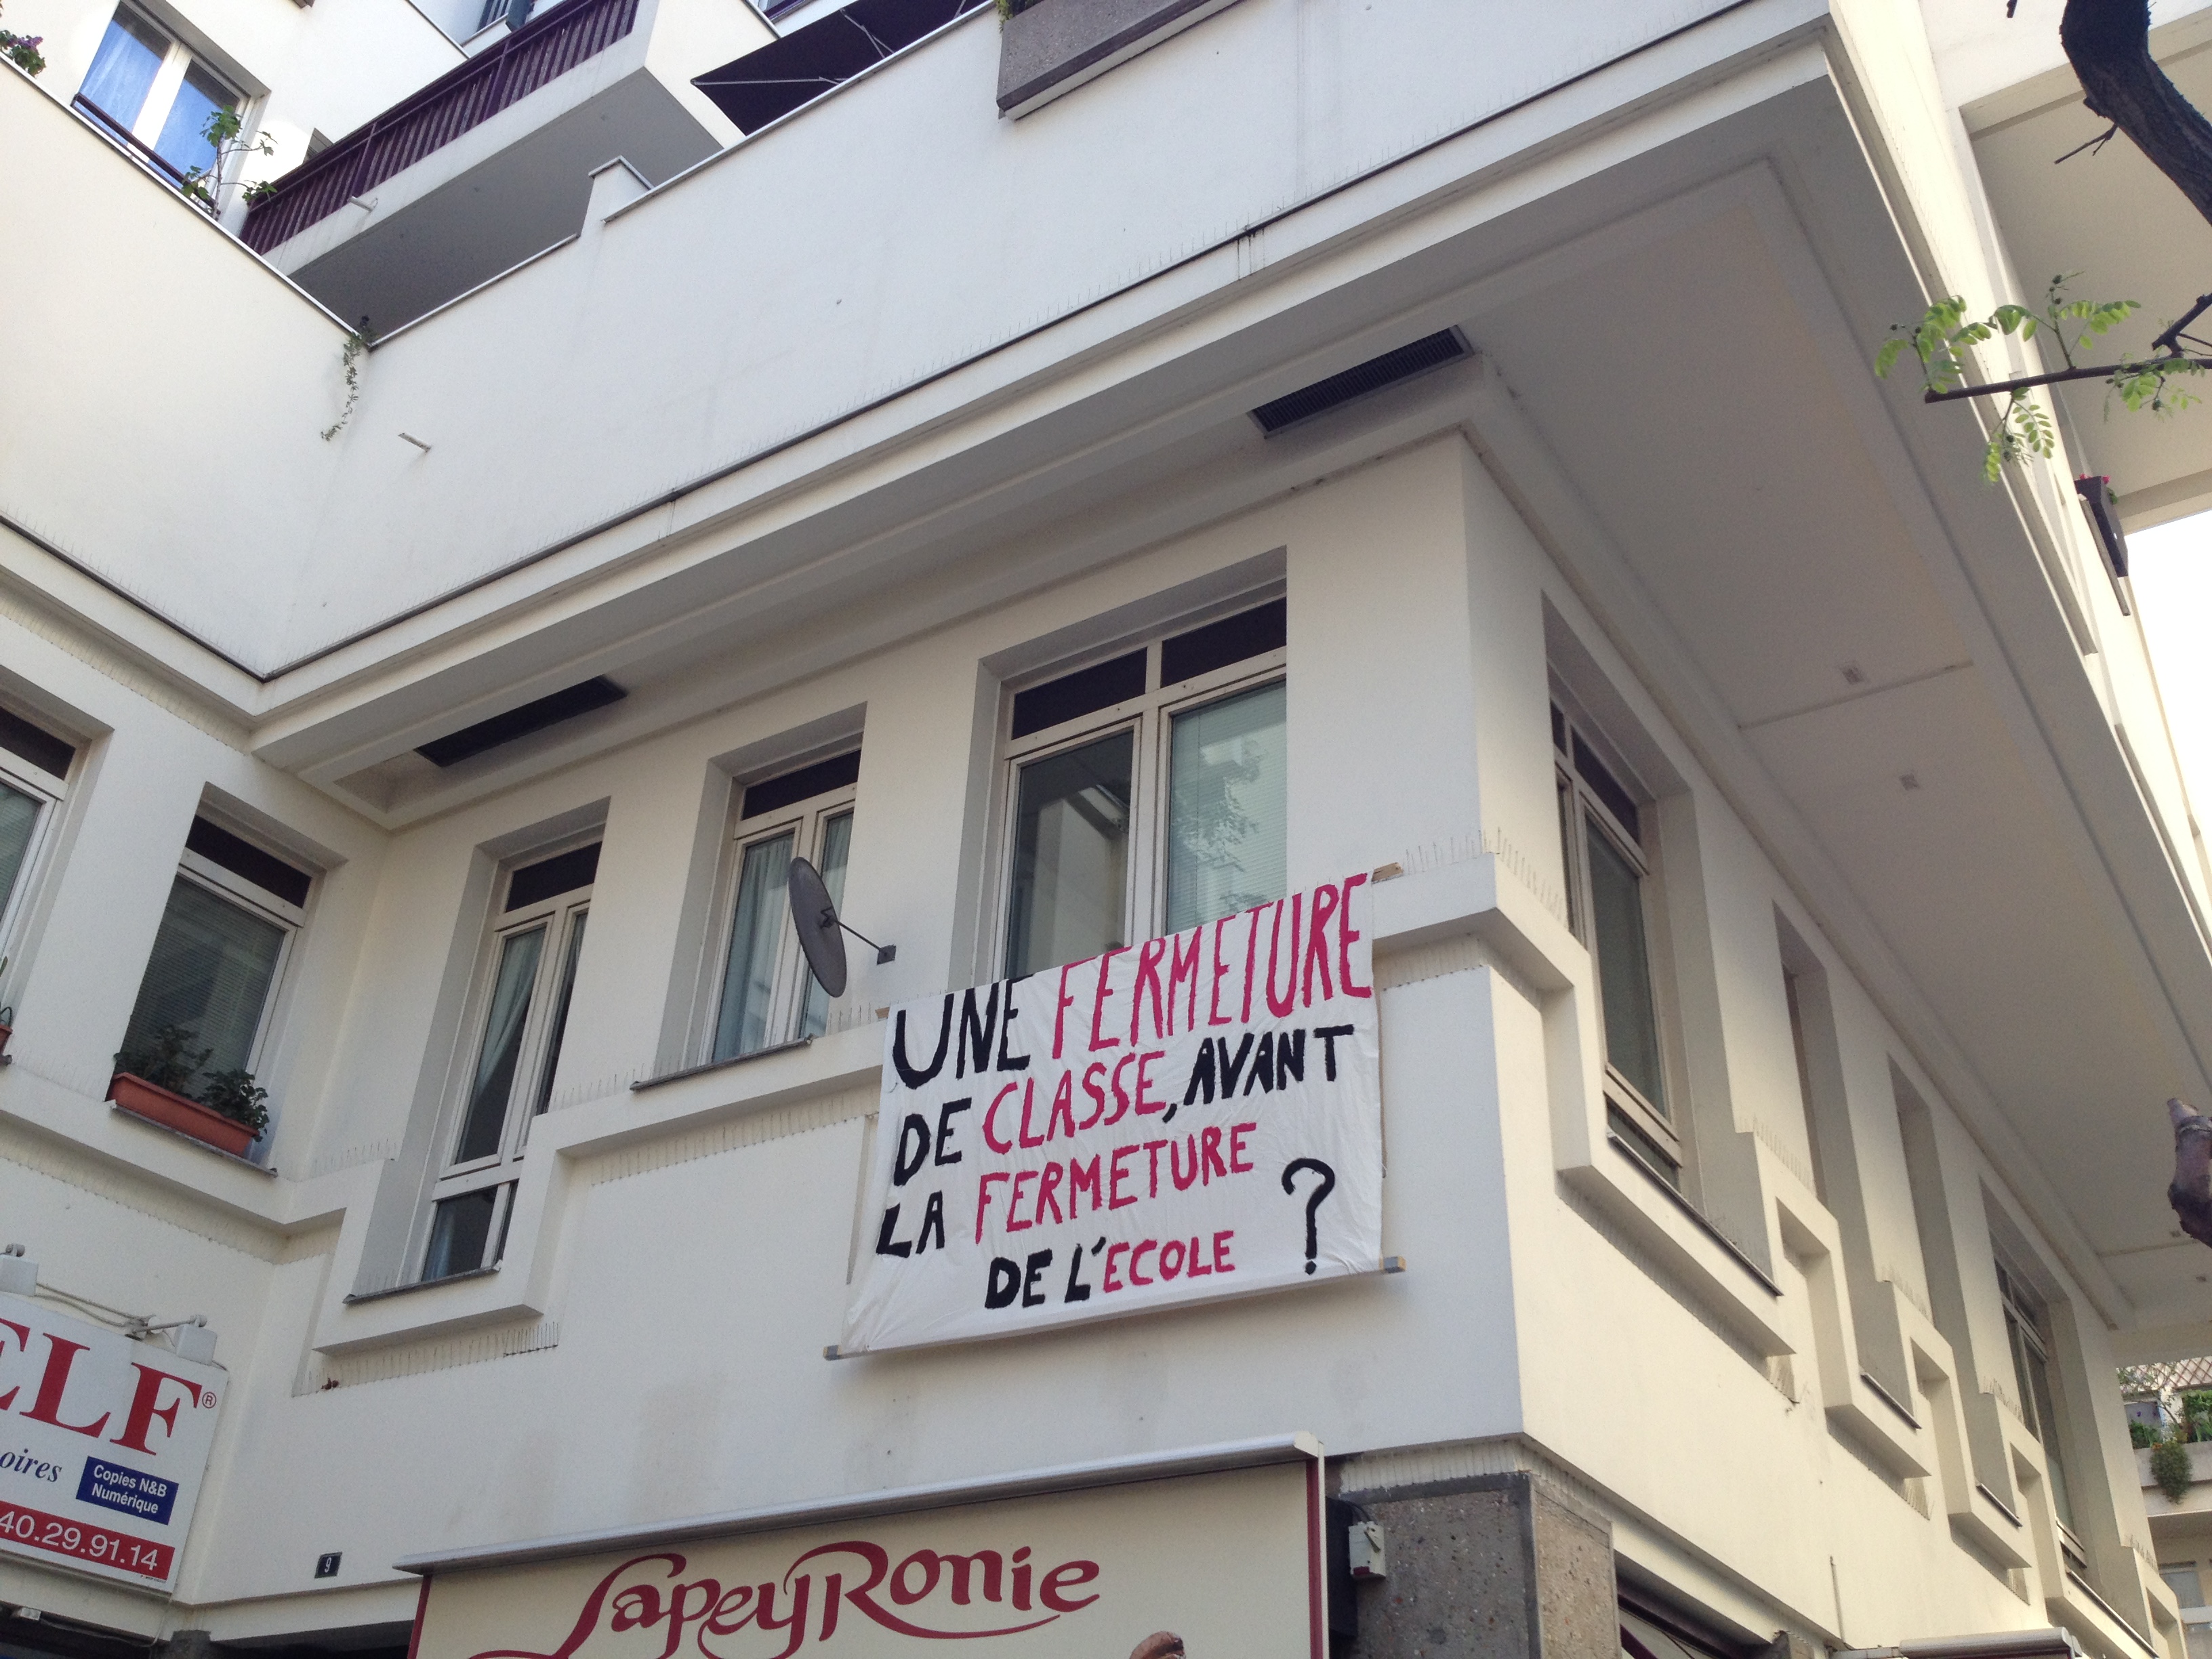 UNE FERMETURE
DE CLASSE, AVANT
LA FERMETURE
DE L'ECOLE ?
ELF®
oires
Copies N&B
Numérique
40.29.91.14
9
LapeyRonie